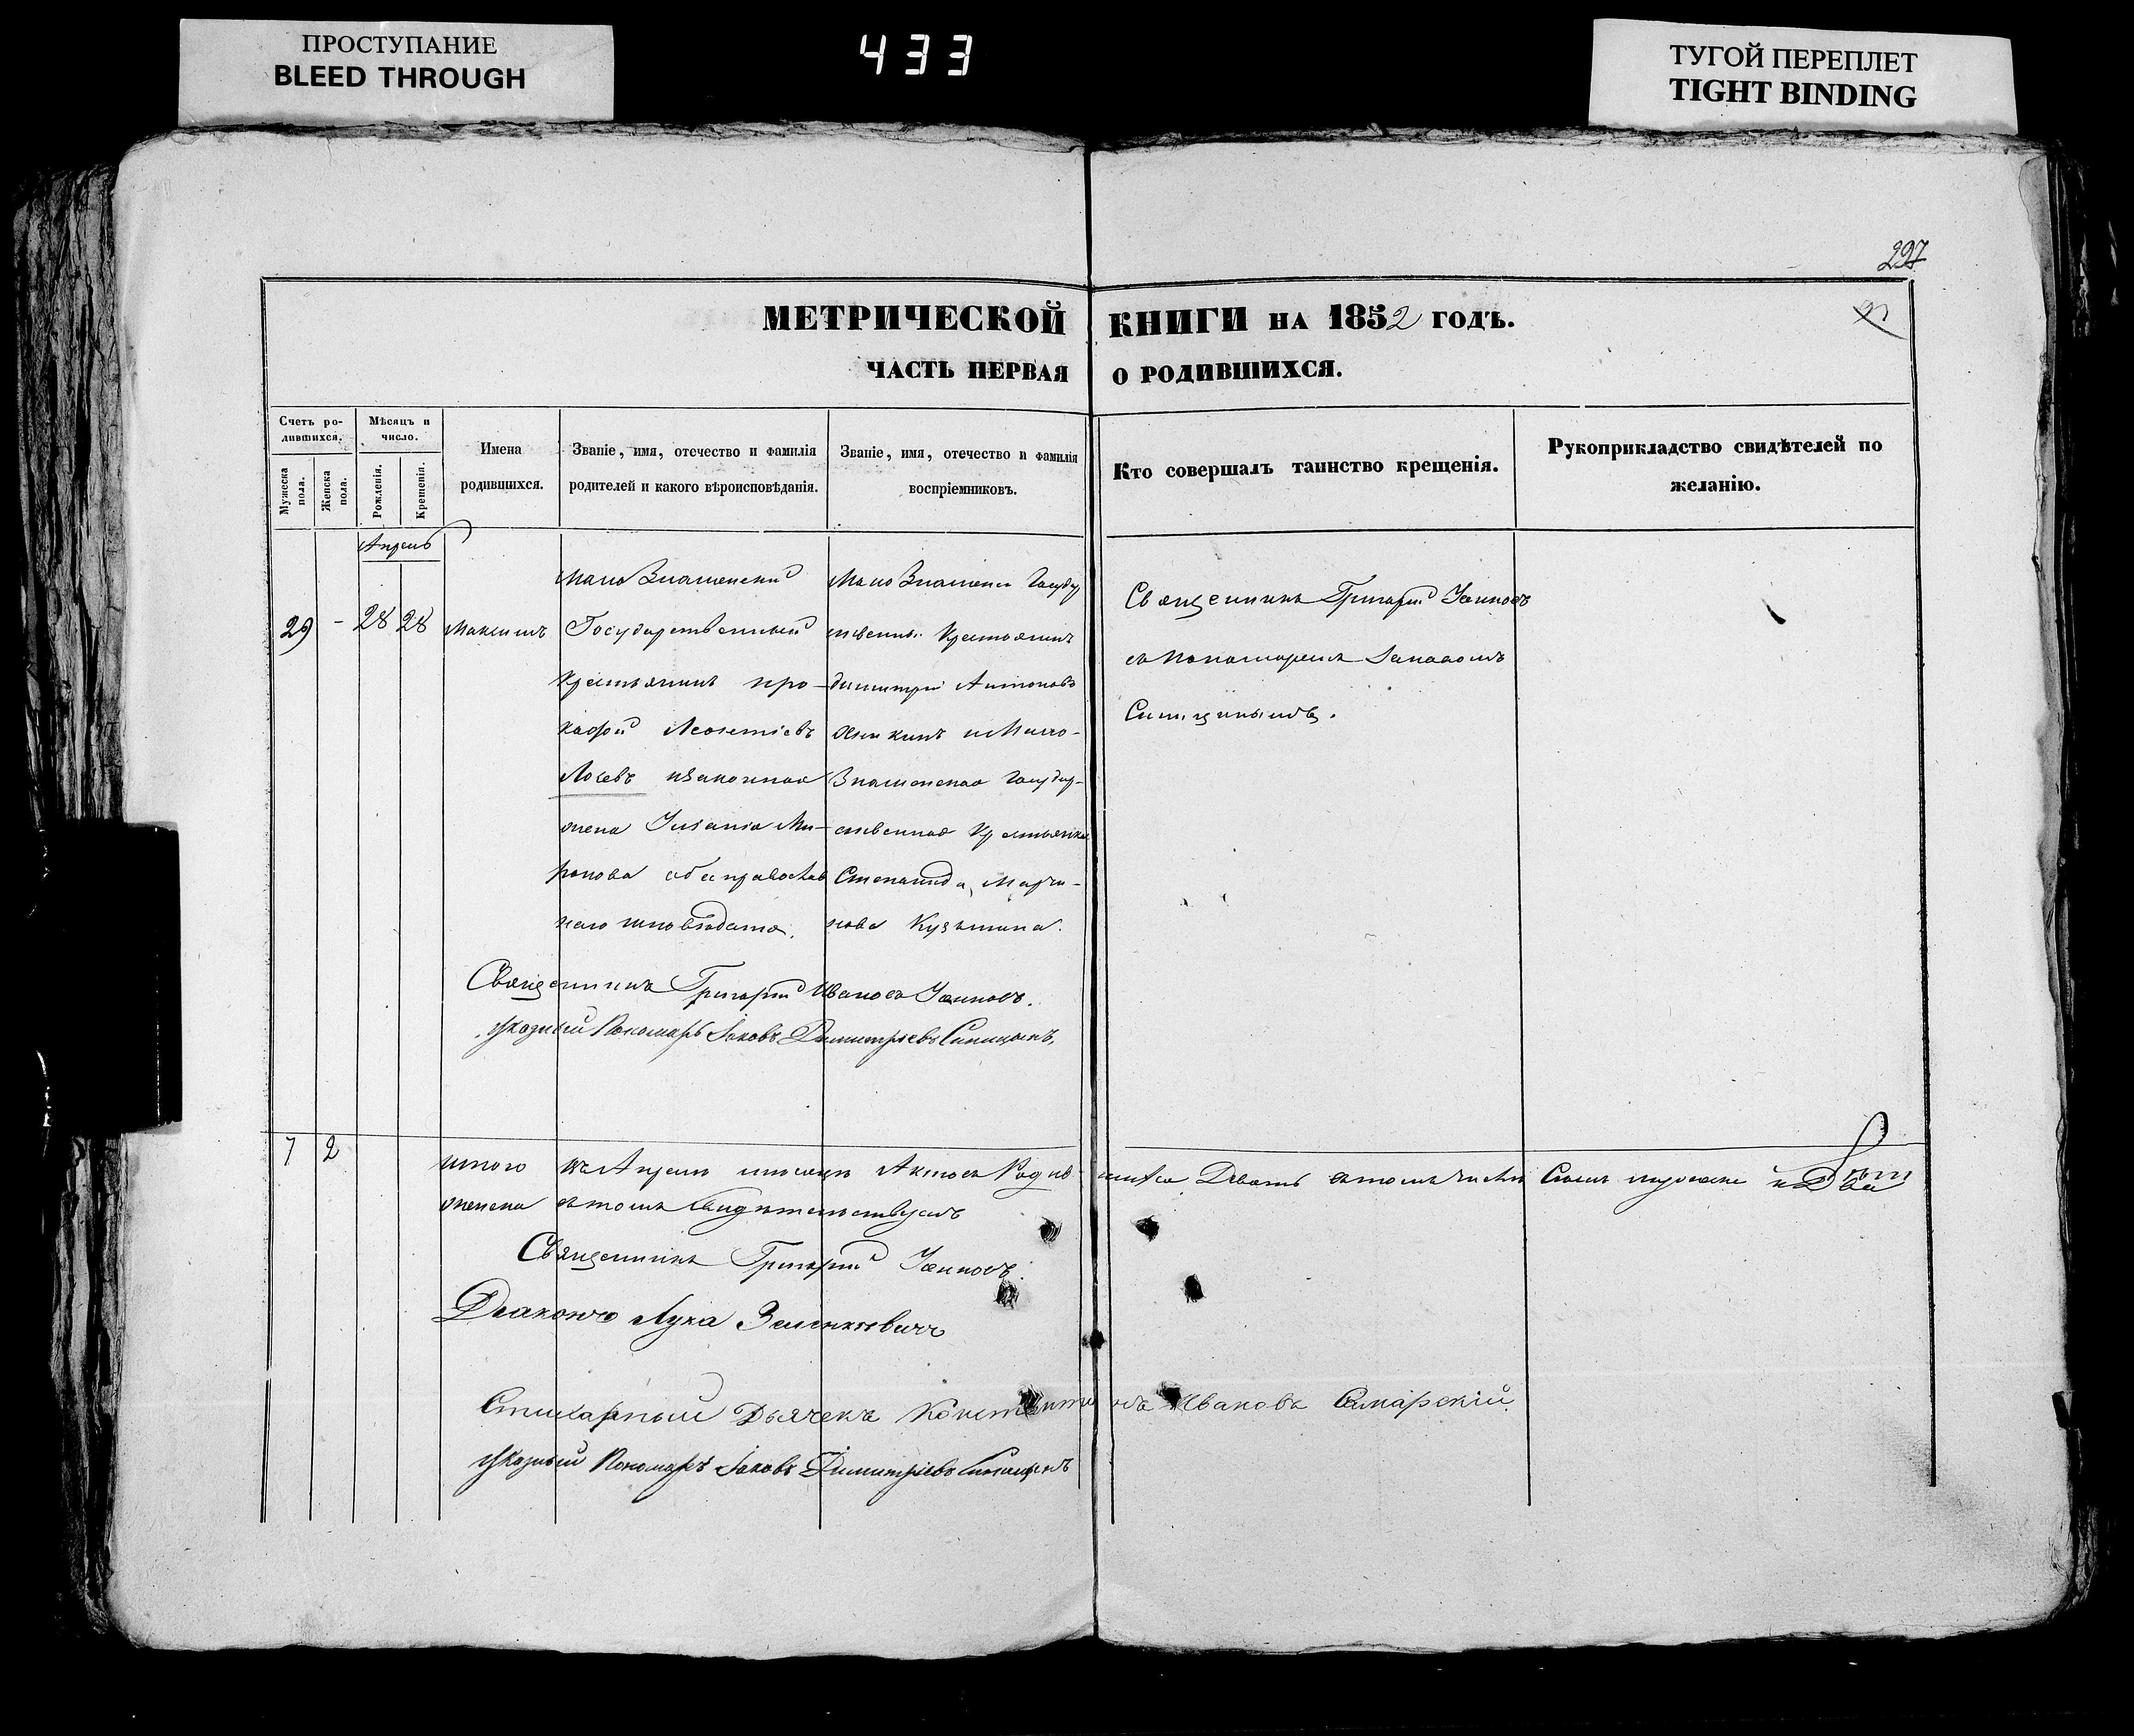 ПРОСТУПАНИЕ
BLEED THROUGH
433
ТУГОЙ ПЕРЕПЛЕТ
TIGHT BINDING
297
МЕТРИЧЕСКОЙ КНИГИ НА 1852 ГОДЪ.
ЧАСТЬ ПЕРВАЯ О РОДИВШИХСЯ.
Счетъ ро-
дившихся.
Мужеска пола.
Женска пола.
Мѣсяцъ и
число.
Рожденія.
Крещенія.
Имена
родившихся.
Званіе, имя, отечество и фамилія
родителей и какого вѣроисповѣданія.
Званіе, имя, отечество и фамилія
воспріемниковъ.
Кто совершалъ таинство крещенія.
Рукоприкладство свидѣтелей по
желанію.
Апрель
29 - 28 28 Максимъ
Мало Знаменский
Государственный
Крестьянинъ Про-
кофий Леонтіевъ
Логевъ и законная
жена Миро-
нова оба православ
наго
Мало Знаменск Государ
ственный Крестьянинъ
Димитрій Антоновъ
и Мало-
Знаменская Государ-
ственная Крестьянка
Степанида Марти-
нова Кузьмина.
Священникъ Григорій
съ Пономаремъ Іаковомъ
Синицинымъ.
Священникъ Григорій Ивановъ
Указный Пономарь Іаковъ Димитріевъ Синицынъ,
7 2
Итого въ Апрелѣ месяцѣ Актовъ Родив-шихся Девять въ томъ числѣ Семь мужеска и Две
женска въ томъ Свидѣтельствуемъ
Священникъ Григорій
Диаконъ Лука Зеленкевичъ
Стихарный Дьячекъ Константинъ Ивановъ Самарскій
Указный Пономарь Іаковъ Димитріевъ Синицынъ